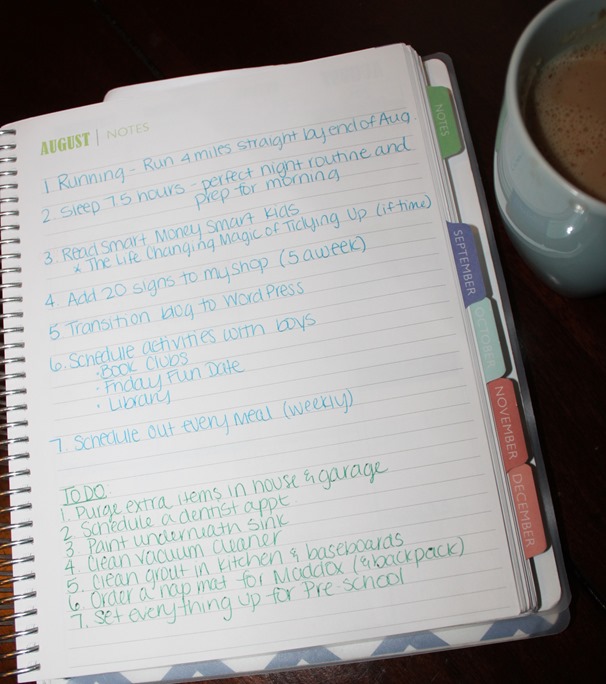 AUGUST | NOTES
1 Running - Run 4 miles straight by end of Aug.
2 Sleep 7.5 hours - perfect night routine and
prep for morning
3. Read Smart Money Smart Kids
* The Life Changing Magic of Tidying Up (if time)
4. Add 20 signs to my shop (5 a week)
5 Transition blog to WordPress
6. Schedule activities with boys
· Book Clubs
· Friday Fun Date
· Library
7. Schedule out every meal (weekly)
TO DO
1. Purge extra items in house & garage
2. Schedule a dentist appt
3. Paint underneath sink
4. Clean vacuum cleaner
5. Clean grout in kitchen & baseboards
6. Order a nap mat for Maddox (& backpack)
7. Set everything up for Pre-school
NOTES
SEPTEMBER
OCTOBER
NOVEMBER
DECEMBER